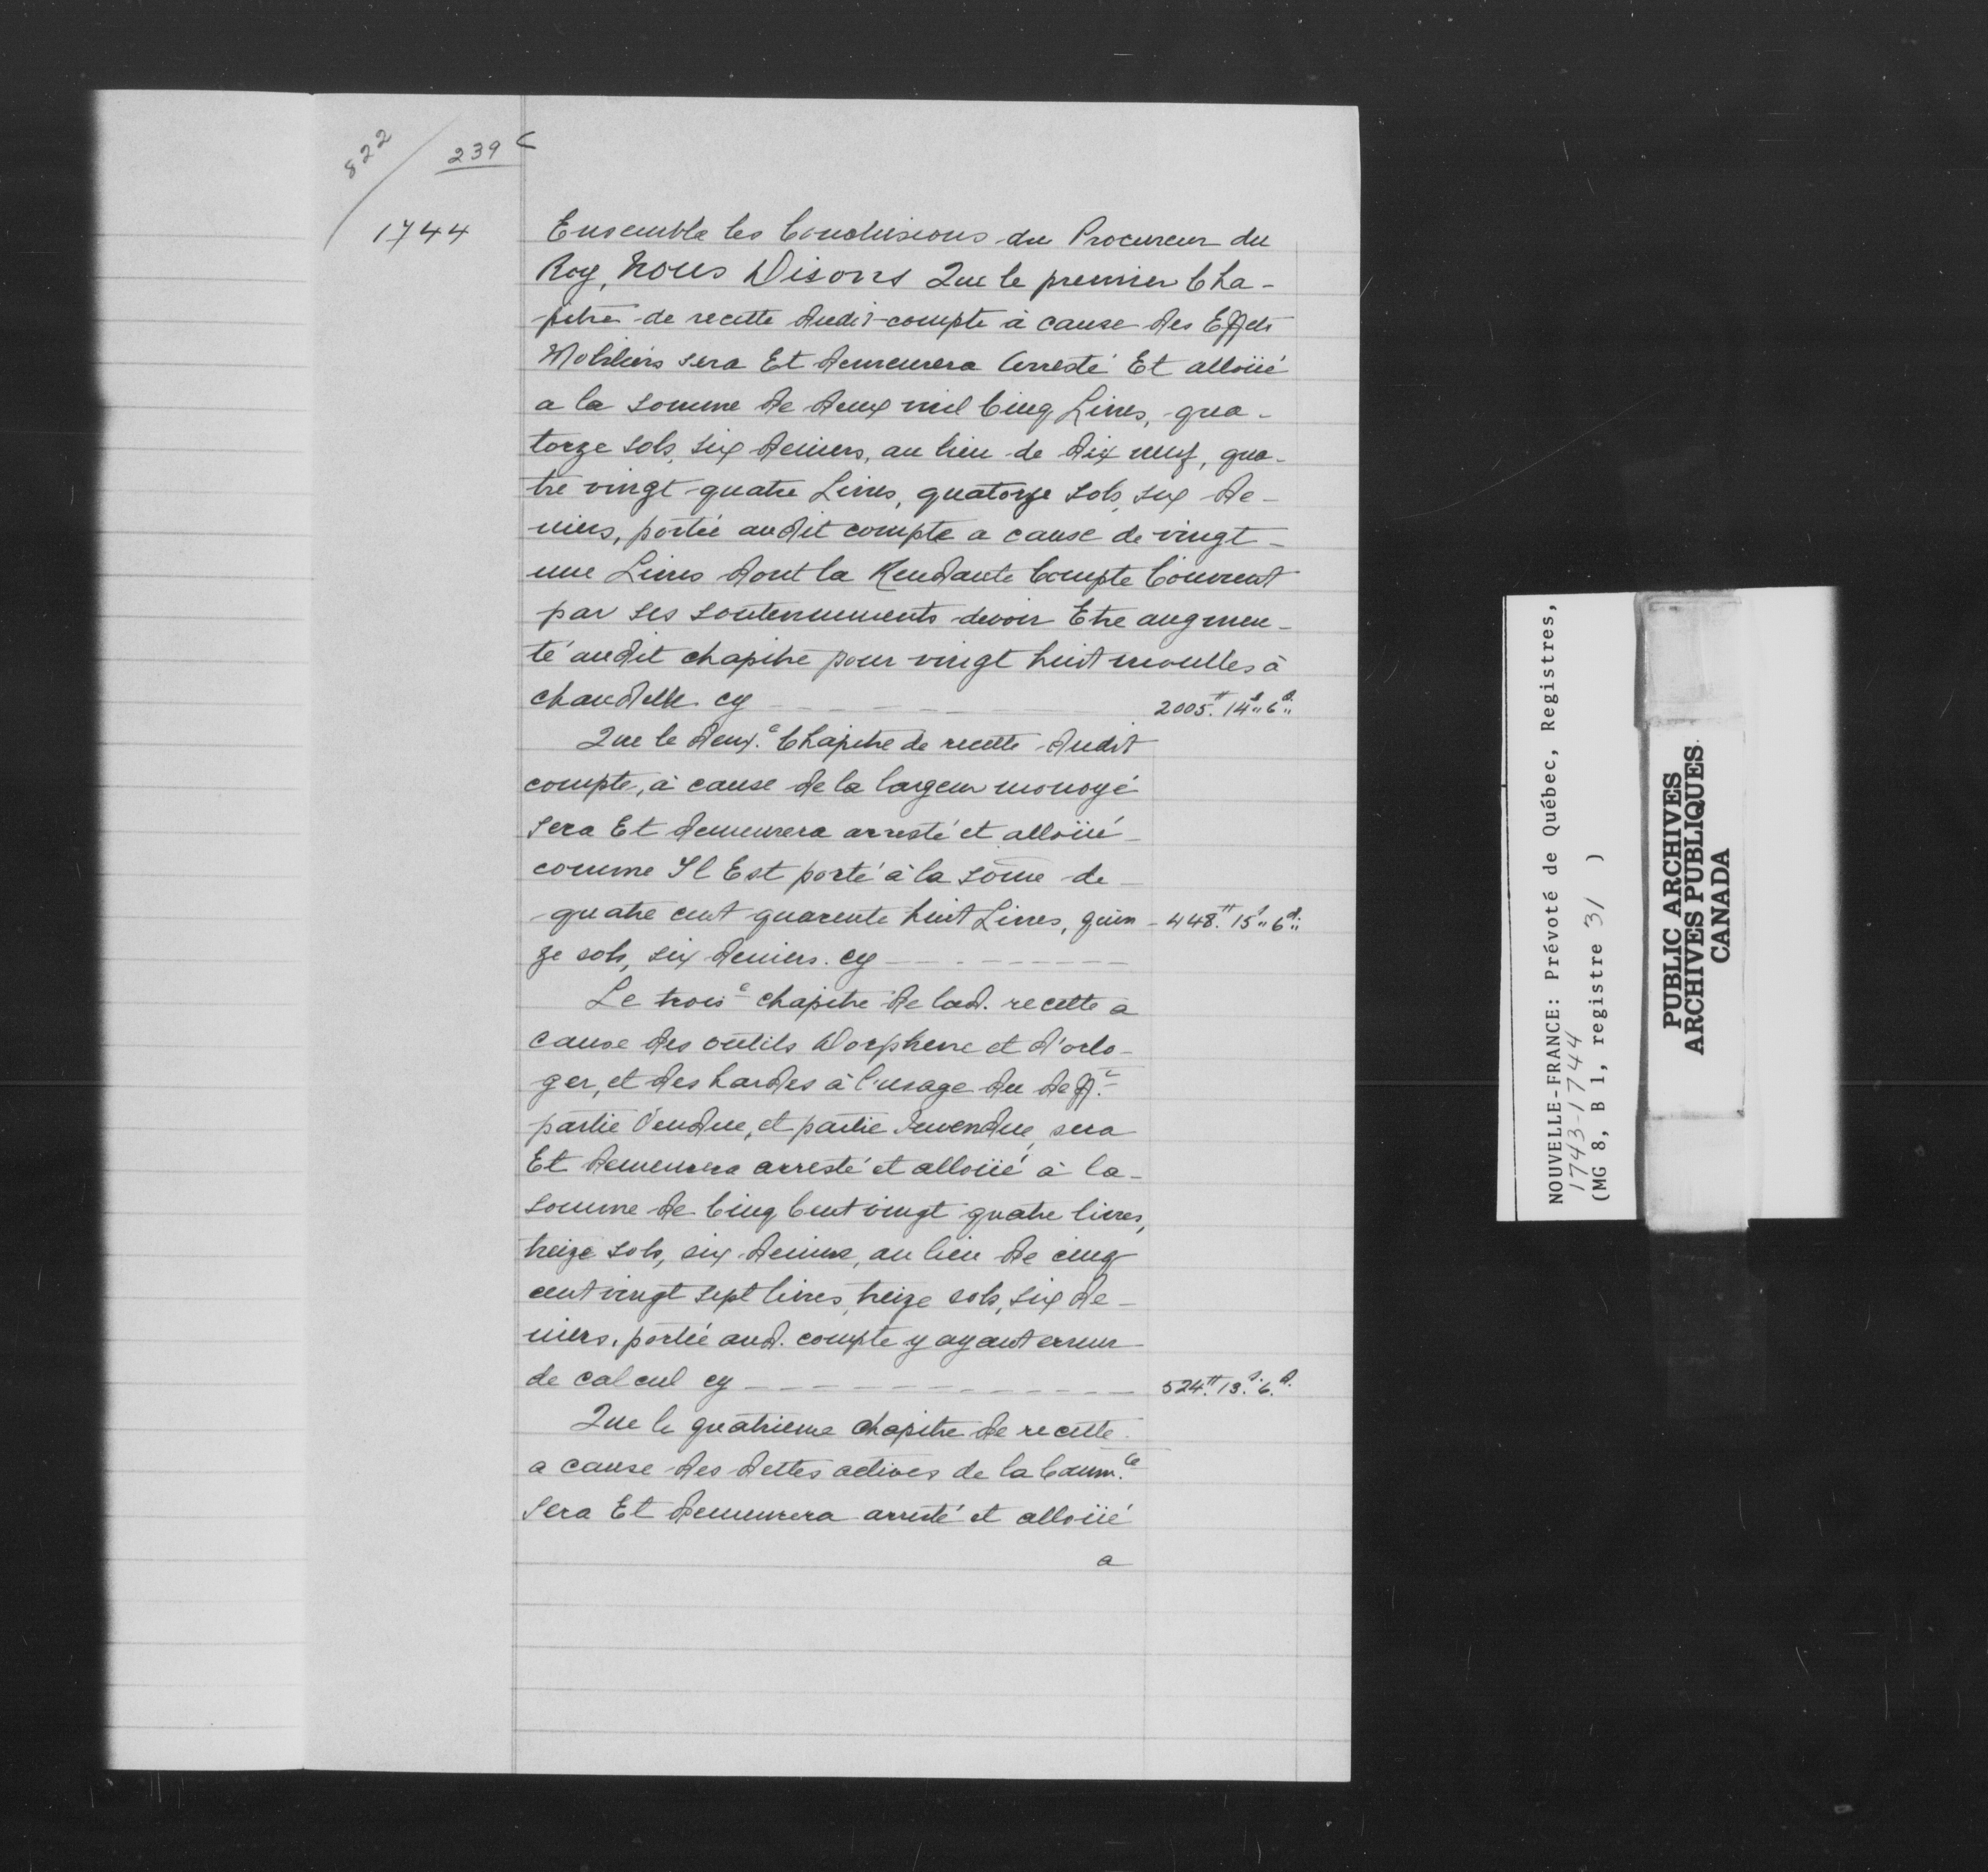 822
239 c
1744
Ensemble les Conclusions du Procureur du
Roy, Nous Disons Que le premier Cha-
pitre de recette dudit compte à cause des Effets
Mobiliers sera Et demeurera Arresté Et alloüé
a la somme de deux mil Cinq Livres, qua-
torze sols, six deniers, au lieu de dix neuf, qua-
tre vingt quatre Livres, quatorze sols, six de-
niers, portée audit compte a cause de vingt-
une Livres dont la Rendante Compte Convient
par ses soutennements devoir Etre augmen-
té audit chapitre pour vingt huit moulles à
chandelle cy 2005.ᵗᵗ 14.ˢ 6.ᵈ
Que le deux.e Chapitre de recette dudit
compte, à cause de la largeur monoyé
sera Et demeurera arresté et alloüé
comme Il Est porté à la some de
quatre cent quarente huit Livres, quin- 448.ᵗᵗ 15.ˢ 6.ᵈ
ze sols, six deniers. cy
Le trois.e chapitre de lad. recette a
cause des outils Dorphevre et d'orlo-
ger, et des hardes à l'usage du deff.t
partie Vendue, et partie Invendue, sera
Et demeurera arresté et alloüé à la
somme de Cinq Cent vingt quatre livres,
treize sols, six deniers, au lieu de cinq
cent vingt sept livres, treize sols, six de-
niers, portée aud. compte y ayant erreur
de calcul cy 524.ᵗᵗ 13.ˢ 6.ᵈ
Que le quatrieme chapitre de recette
a cause des dettes actives de la Comm.té
sera Et demeurera arresté et alloüé
a
NOUVELLE-FRANCE: Prévoté de Québec, Registres,
1743-1744
(MG 8, B 1, registre 31 )
PUBLIC ARCHIVES
ARCHIVES PUBLIQUES
CANADA